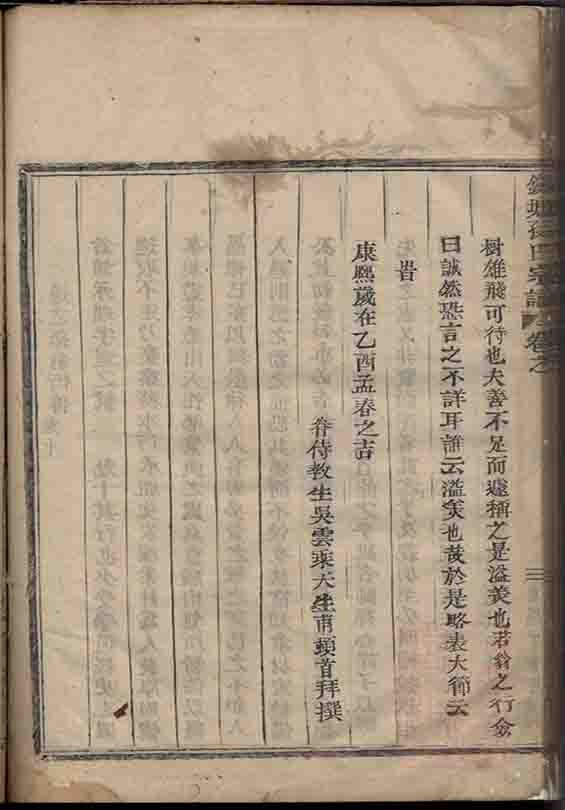 樹雄飛可待也夫善不足而遽稱之是溢美也若翁之行僉
曰誠然恐言之不詳耳誰云溢美也哉於是略表大節云
旹
康熙歲在乙酉孟春之吉
眷侍教生吳雲乘天生甫頓首拜撰
氏宗譜
卷之